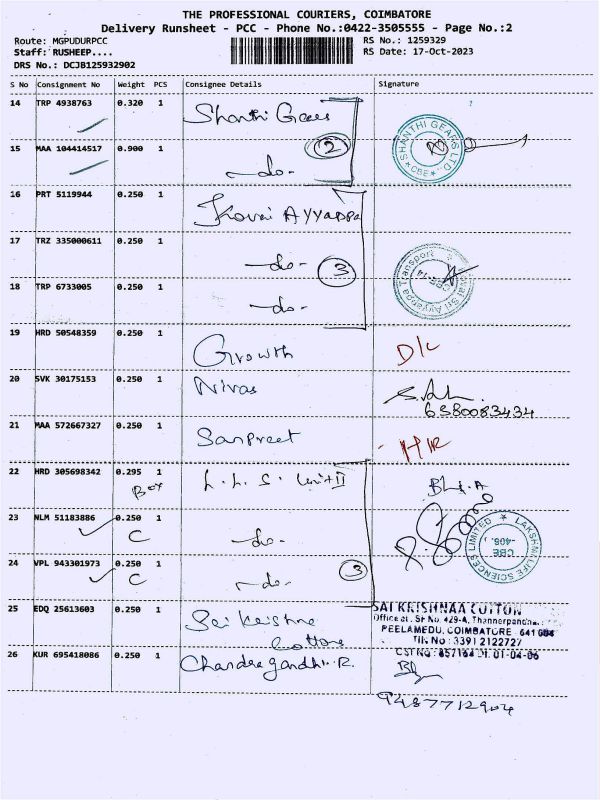 THE PROFESSIONAL COURIERS, COIMBATORE
Delivery Runsheet - PCC - Phone No.:0422-3505555 - Page No.:2
Route: MGPUDURPCC
Staff: RUSHEEP....
DRS No.: DCJB125932902
RS No.: 1259329
RS Date: 17-Oct-2023
S No Consignment No Weight PCS Consignee Details Signature
14 TRP 4938763 0.320 1 Shanthi Gears
2
SHANTHI GEARS LTD. CBE
15 MAA 104414517 0.900 1 -do-
16 PRT 5119944 0.250 1 Kovai Ayyappa
17 TRZ 335000611 0.250 1 -do-
3
Kovai Sri Ayyappa Transport CBE-14
18 TRP 6733005 0.250 1 -do-
19 HRD 50548359 0.250 1 Growth D/L
20 SVK 30175153 0.250 1 Nivas
6380083434
21 MAA 572667327 0.250 1 Sanpreet
22 HRD 305698342 0.295 1 L. L. S. Unit II
Box
23 NLM 51183886 0.250 1 -do-
C
LAKSHMI LIFE SCIENCES LIMITED CBE
24 VPL 943301973 0.250 1 -do-
C
3
25 EDQ 25613603 0.250 1 Sai Krishna Cottons
SAI KRISHNAA COTTON
Office at. SF No. 429-A,
PEELAMEDU, COIMBATORE - 641 004
TIN No : 3391 2122727
CST No : 857184 Dt. 01-04-06
26 KUR 695418086 0.250 1 Chandragandhi. R.
9487712904